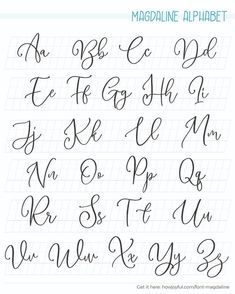 MAGDALINE ALPHABET
Aa Bb Cc Dd
Ee Ff Gg Hh Ii
Jj Kk Ll Mm
Nn Oo Pp Qq
Rr Ss Tt Uu
Vv Ww Xx Yy Zz
Get it here: howjoyful.com/font-magdaline